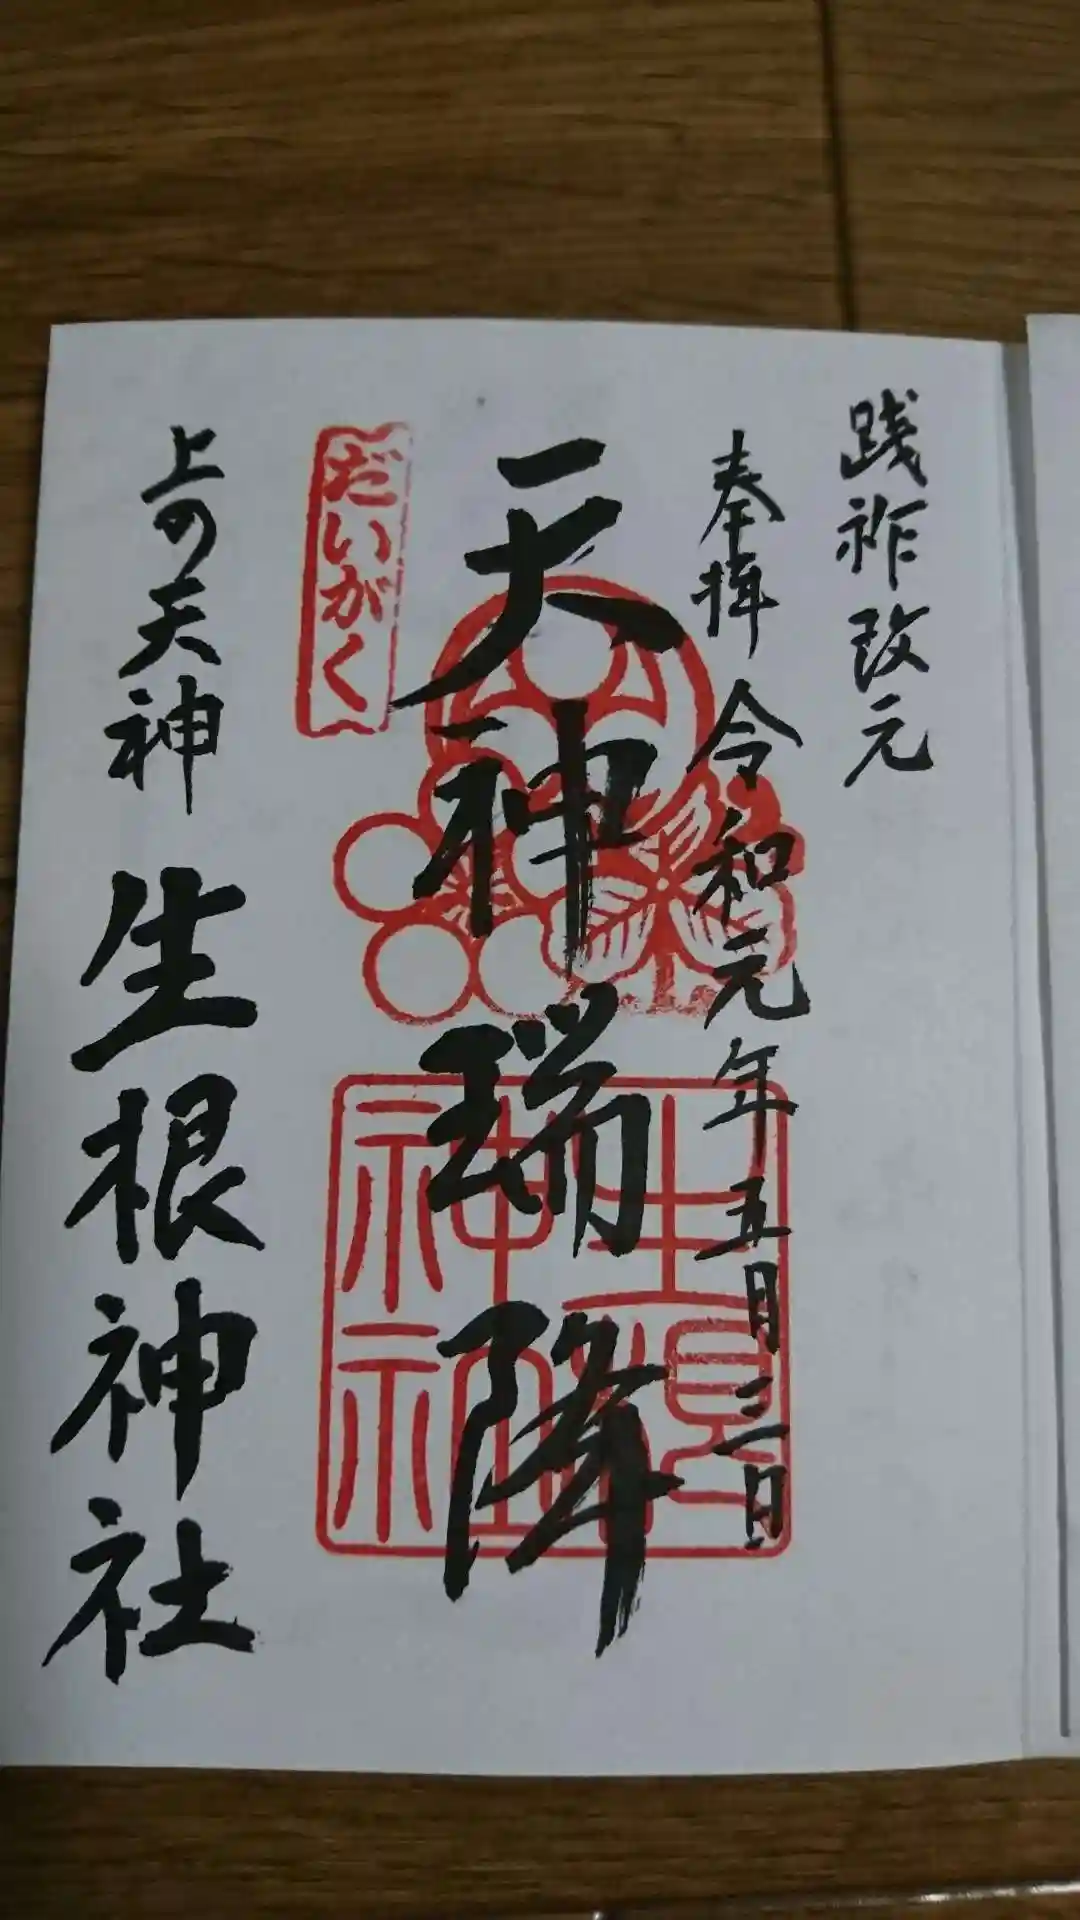 践祚改元
奉拝 令和元年五月三日
天神瑞降
だいがく
生根神社
上の天神 生根神社